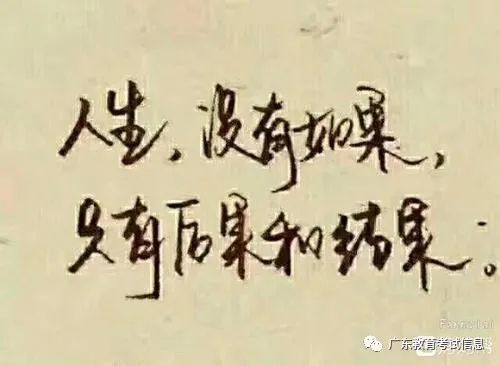 人生,没有如果,
只有后果和结果。
Fanglai
广东教育考试信息